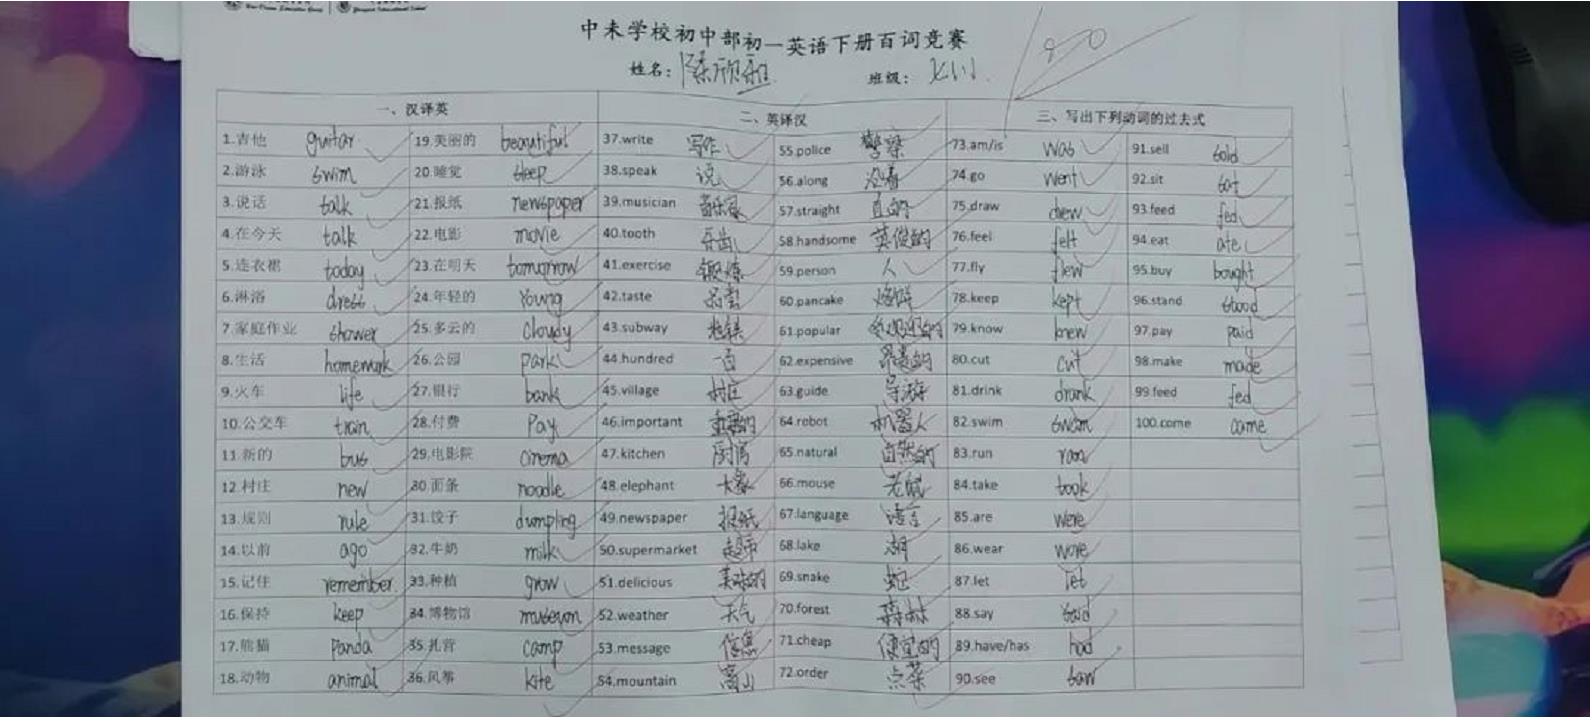 中未学校初中部初一英语下册百词竞赛
姓名: 班级:
一、汉译英 二、英译汉 三、写出下列动词的过去式
1.吉他 guitar 19.美丽的 beautiful 37.write 写作 55.police 警察 73.am/is was 91.sell sold
2.游泳 swim 20.睡觉 sleep 38.speak 说 56.along 沿着 74.go went 92.sit sat
3.说话 talk 21.报纸 newspaper 39.musician 音乐家 57.straight 直的 75.draw drew 93.feed fed
4.在今天 talk 22.电影 movie 40.tooth 牙齿 58.handsome 英俊的 76.feel felt 94.eat ate
5.连衣裙 today 23.在明天 tomorrow 41.exercise 锻炼 59.person 人 77.fly flew 95.buy bought
6.淋浴 dress 24.年轻的 Young 42.taste 品尝 60.pancake 烙饼 78.keep kept 96.stand stood
7.家庭作业 shower 25.多云的 cloudy 43.subway 地铁 61.popular 受欢迎的 79.know knew 97.pay paid
8.生活 homework 26.公园 park 44.hundred 一百 62.expensive 昂贵的 80.cut cut 98.make made
9.火车 life 27.银行 bank 45.village 村庄 63.guide 导游 81.drink drank 99.feed fed
10.公交车 train 28.付费 Pay 46.important 重要的 64.robot 机器人 82.swim swam 100.come came
11.新的 bus 29.电影院 cinema 47.kitchen 厨房 65.natural 自然的 83.run ran
12.村庄 new 30.面条 noodle 48.elephant 大象 66.mouse 老鼠 84.take took
13.规则 rule 31.饺子 dumpling 49.newspaper 报纸 67.language 语言 85.are were
14.以前 ago 32.牛奶 milk 50.supermarket 超市 68.lake 湖 86.wear wore
15.记住 remember 33.种植 grow 51.delicious 美味的 69.snake 蛇 87.let let
16.保持 keep 34.博物馆 52.weather 天气 70.forest 森林 88.say said
17.熊猫 Panda 35.扎营 camp 53.message 信息 71.cheap 便宜的 89.have/has had
18.动物 animal 36.风筝 kite 54.mountain 高山 72.order 点菜 90.see saw